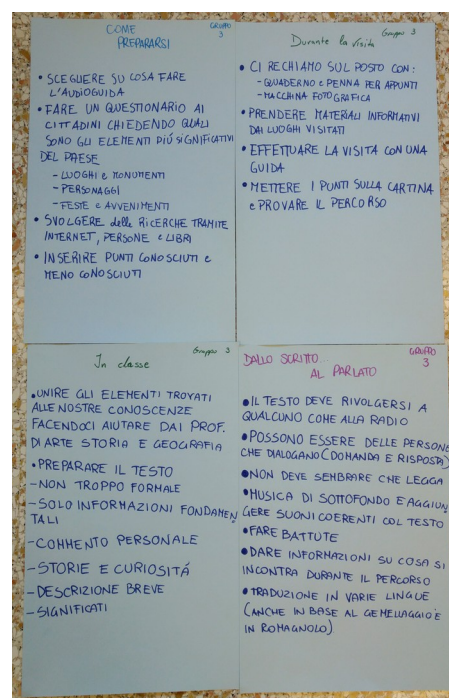 COME
PREPARARSI
GRUPPO
3
• SCEGLIERE SU COSA FARE
L'AUDIOGUIDA
• FARE UN QUESTIONARIO AI
CITTADINI CHIEDENDO QUALI
SONO GLI ELEMENTI PIÚ SIGNIFICATIVI
DEL PAESE
- LUOGHI e MONUMENTI
- PERSONAGGI
- FESTE e AVVENIMENTI
• SVOLGERE delle RICERCHE TRAMITE
INTERNET, PERSONE e LIBRI
• INSERIRE PUNTI CONOSCIUTI e
MENO CONOSCIUTI
Durante la visita
Gruppo 3
• CI RECHIAMO SUL POSTO CON:
- QUADERNO e PENNA PER APPUNTI
- MACCHINA FOTOGRAFICA
• PRENDERE MATERIALI INFORMATIVI
DAI LUOGHI VISITATI
• EFFETTUARE LA VISITA CON UNA
GUIDA
• METTERE I PUNTI SULLA CARTINA
e PROVARE IL PERCORSO
In classe
Gruppo 3
• UNIRE GLI ELEMENTI TROVATI
ALLE NOSTRE CONOSCENZE
FACENDOCI AIUTARE DAI PROF.
DI ARTE STORIA E GEOGRAFIA
• PREPARARE IL TESTO
- NON TROPPO FORMALE
- SOLO INFORMAZIONI FONDAMEN
TALI
- COMMENTO PERSONALE
- STORIE E CURIOSITÁ
- DESCRIZIONE BREVE
- SIGNIFICATI
DALLO SCRITTO...
AL PARLATO
GRUPPO
3
• IL TESTO DEVE RIVOLGERSI A
QUALCUNO COME ALLA RADIO
• POSSONO ESSERE DELLE PERSONE
CHE DIALOGANO (DOMANDA E RISPOSTA)
• NON DEVE SEMBRARE CHE LEGGA
• MUSICA DI SOTTOFONDO E AGGIUN
GERE SUONI COERENTI COL TESTO
• FARE BATTUTE
• DARE INFORMAZIONI SU COSA SI
INCONTRA DURANTE IL PERCORSO
• TRADUZIONE IN VARIE LINGUE
(ANCHE IN BASE AL GEMELLAGGIO E
IN ROMAGNOLO)